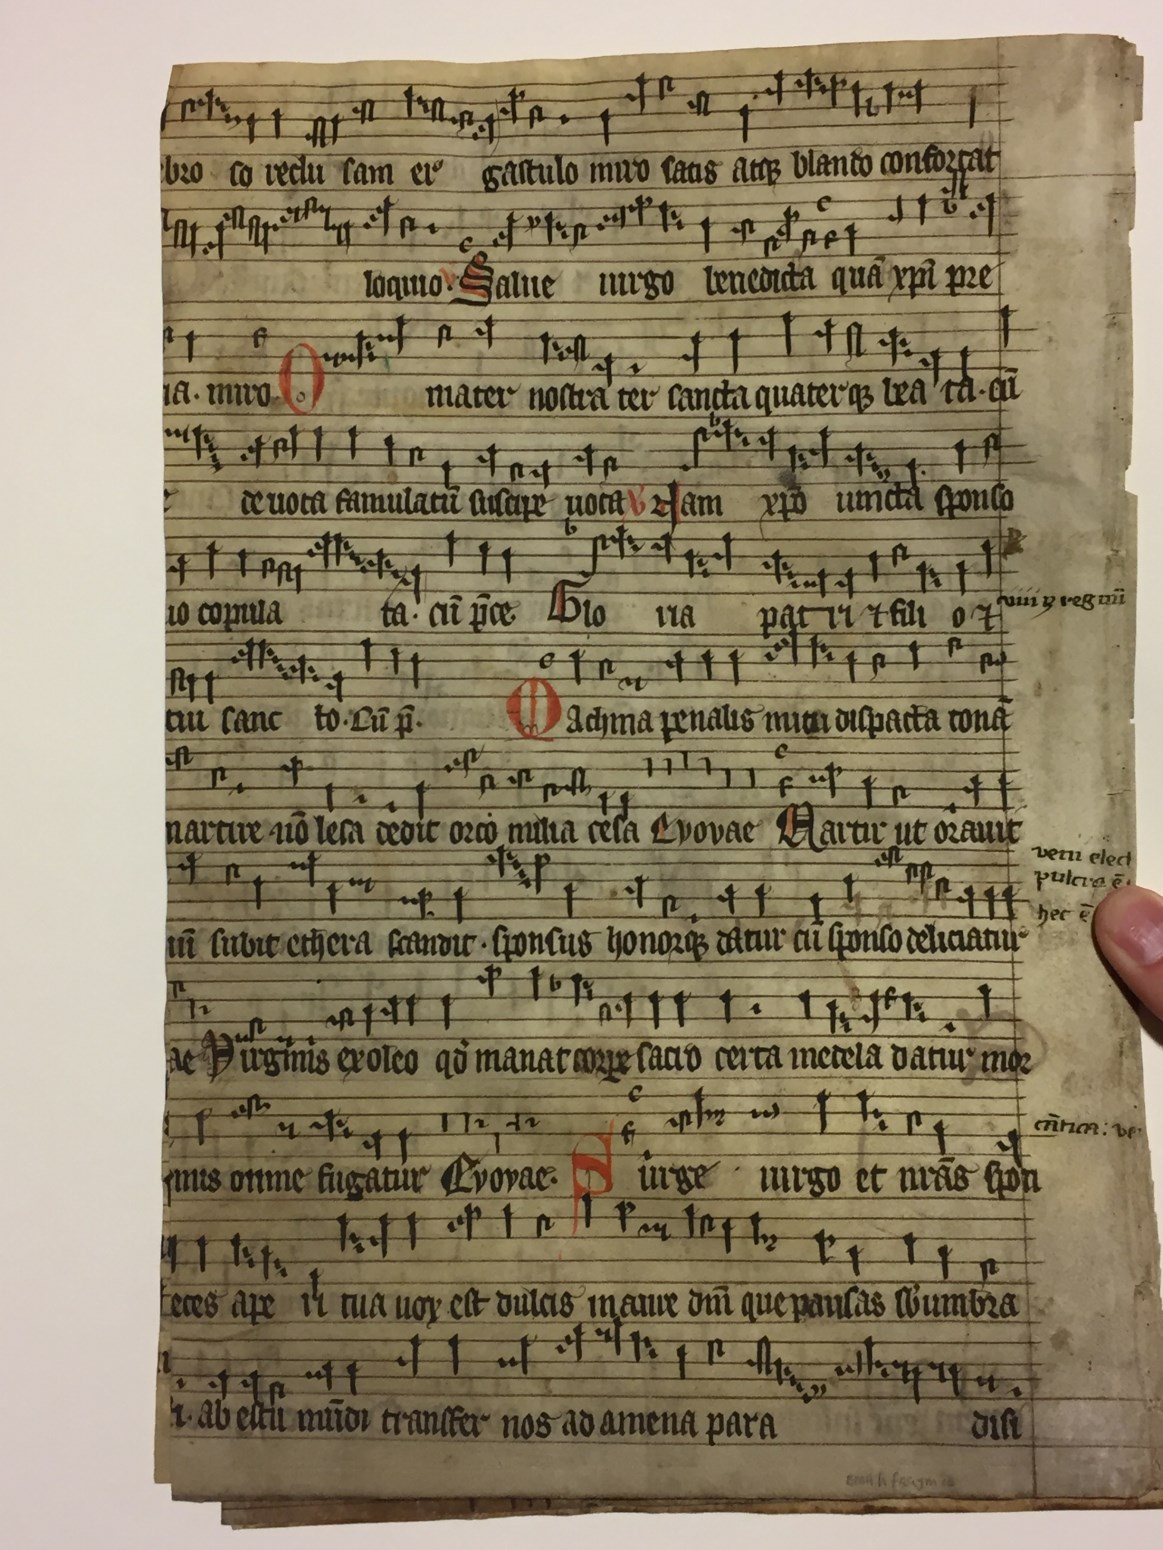 bro so reclu sam er gastulo miro satis atqꝫ blando confortat
loquio. V Salue uirgo benedicta quā xp̄i pre
ia. miro. O mater nostra ter sancta quaterqꝫ bea ta. cū
deuota famulatū suscipe uota V Iam xp̄o iuncta sponso
io copula ta. cū p̄ce. Glo ria pat ri ⁊ fili o ⁊
viii
tui sanc to. Cū p̄. Machina penalis dispacta tonā
martire nō lesa dedit orco milia cesa Evovae Martir ut orauit
subit ethera scandit. sponsus honorqꝫ datur cū sponso deliciatur
vern elect
pulcra ē
hec ē
ae Virginis ex oleo qd̄ manat corpe sacro certa medela datur mor
omne fugatur Evovae. Surge uirgo et nrās spon
preces ape ri tua uox est dulcis in aure dn̄i que pausas sb umbra
i. ab estu mūdi transfer nos ad amena para disi